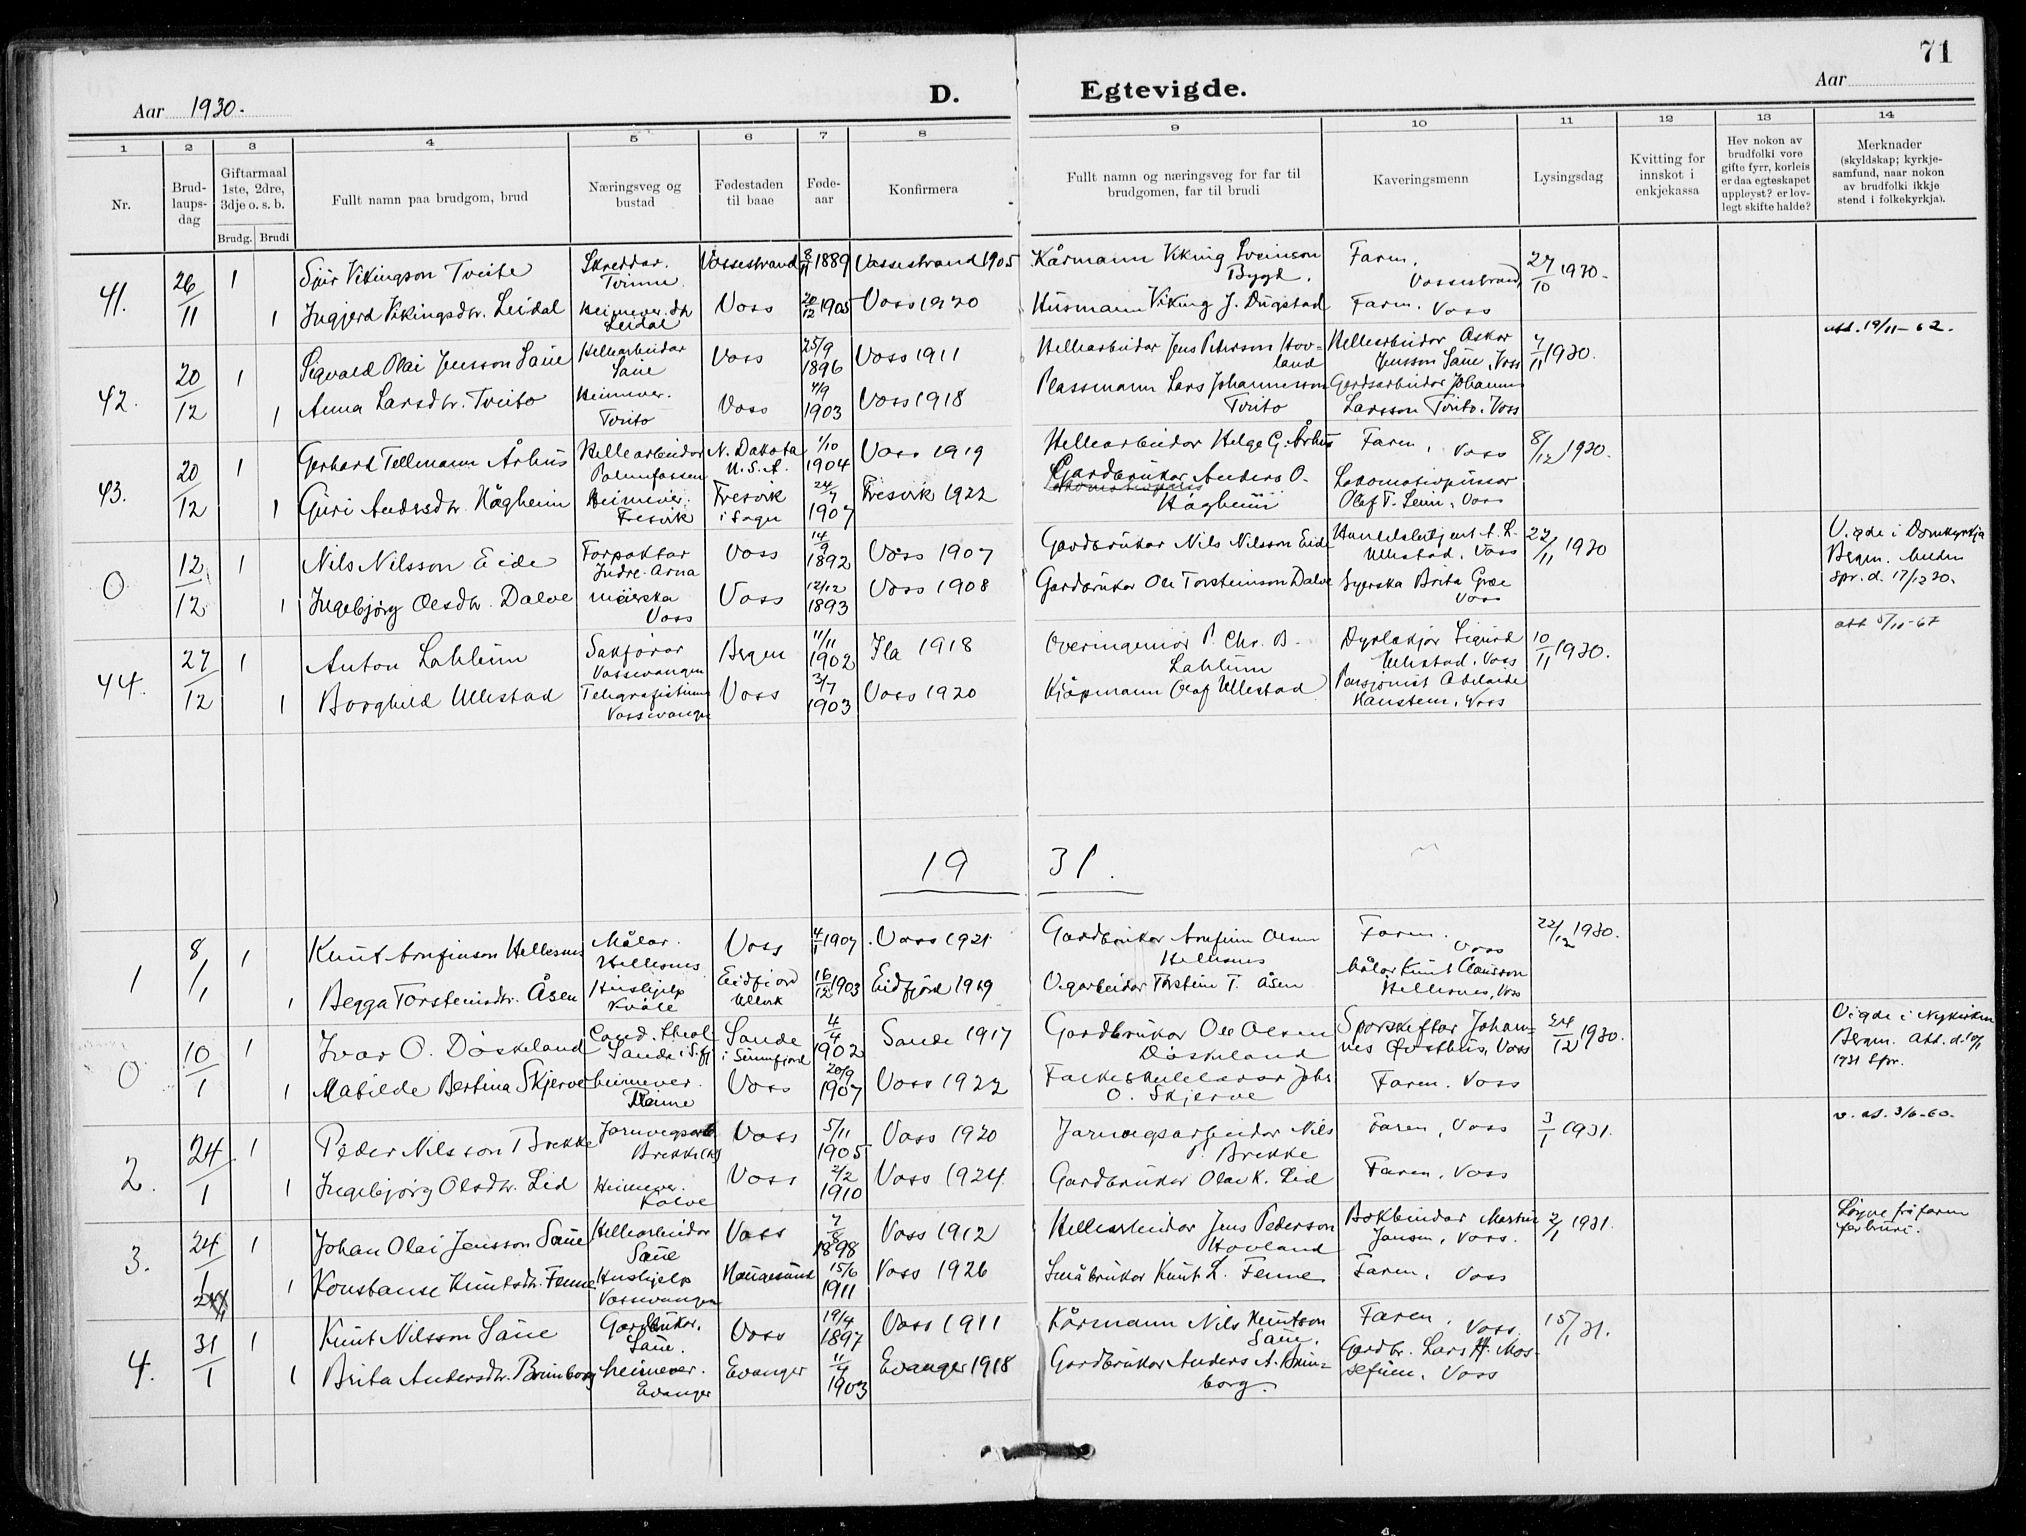 71
Aar 1930.
D.
Egtevigde.
Aar
1 2 3 4 5 6 7 8 9 10 11 12 13 14
Nr.
Brud-
laups-
dag
Giftarmaal
1ste, 2dre,
3dje o. s. b.
Brudg. Brudi
Fullt namn paa brudgom, brud
Næringsveg og
bustad
Fødestaden
til baae
Føde-
aar
Konfirmera
Fullt namn og næringsveg for far til
brudgomen, far til brudi
Kaveringsmenn
Lysingsdag
Kvitting for
innskot i
enkjekassa
Hev nokon av
brudfolki vore
gifte fyrr, korleis
er daa egteskapet
uppløyst? er lov-
legt skifte halde?
Merknader
(skyldskap; kyrkje-
samfund, naar nokon
av brudfolki ikkje
stend i folkekyrkja).
41. 26/11 1 Sjur Vikingson Tveite Skreddar. Tvinne Vossestrand 8/11 1889 Vossestrand 1905 Kårmann Viking Sveinson Bygd. Faren. Vossestrand 27/10 1930.
1 Ingjerd Vikingsdtr. Leidal Heimever. Leidal Voss 20/12 1905 Voss 1920 Husmann Viking J. Dugstad Faren. Voss
42. 20/12 1 Sigvald Olai Jensson Saue Hellearbeidar Saue Voss 25/9 1896 Voss 1911 Hellearbeidar Jens Peterson Hovland Hellearbeidar Oskar Jensson Saue, Voss 7/11 1930. att. 19/11-62.
1 Anna Larsdtr. Tveito Heimever. Tveito Voss 4/9 1903 Voss 1918 Plassmann Lars Johannesson Tveito Gardsarbeidar Johannes Larsson Tveito, Voss
43. 20/12 1 Gerhard Tellmann Århus Hellearbeidar Palmafossen N. Dakota U.S.A. 1/10 1904 Voss 1919 Hellearbeidar Helge G. Århus Faren, Voss 8/12 1930.
1 Guri Andersdtr. Hågheim Heimever. Fresvik Fresvik i Sogn 24/7 1907 Fresvik 1922 Gardbrukar Anders O. Hågheim Lokomotivpussar Olaf T. Seim, Voss
0 12/12 1 Nils Nilsson Eide Forpaktar Indre-Arna Voss 14/9 1892 Voss 1907 Gardbrukar Nils Nilsson Eide Ullestad, Voss 22/11 1930 Vigde i Domkyrkja Bergen.
1 Ingebjørg Olsdtr. Dalve meierska Voss Voss 12/12 1893 Voss 1908 Gardbrukar Ole Torsteinson Dalve Syerska Brita Græe Voss
44. 27/12 1 Anton Lahlum Sakførar Vossevangen Bergen 11/11 1902 Ila 1918 Overingeniør P. Chr. B. Lahlum Dyrlækjar Sigurd Ullestad, Voss 10/11 1930.
1 Borghild Ullestad Telegrafistinne Vossevangen Voss 3/7 1903 Voss 1920 Kjøpmann Olaf Ullestad Pensjonist Adelaide Hanstein, Voss
19 31.
1 8/1 1 Knut Arnfinson Hellesnes Målar. Hellesnes Voss 4/1 1907 Voss 1921 Gardbrukar Arnfinn Olsen Hellesnes Faren. Voss 22/12 1930.
1 Begga Torsteinsdtr. Åsen Hushjelp Kvåle Eidfjord Ullvik 16/12 1903 Eidfjord 1919 Torstein T. Åsen Målar Knut Hellesnes, Voss
0 10/1 1 Ivar O. Døskeland Cand. theol Sande i S.fj Sande i Sunnfjord 4/4 1902 Sande 1917 Gardbrukar Ole Olsen Døskeland Johannes Østhus, Voss 24/12 1930. Vigde i Nykirken Bergen.
1 Matilde Bertina Skjerve heimever. Voss 20/9 1907 Voss 1922 Folkeskulelærar Johs O. Skjerve Faren. Voss
2. 24/1 1 Peder Nilsson Brekke Jarnvegsarb Brekke Voss 5/11 1905 Voss 1920 Jarnvegsarbeidar Nils P. Brekke Faren, Voss 3/1 1931. 3/6-60.
1 Ingebjørg Olsdtr. Lid Heimever. Kolve Voss 2/2 1910 Voss 1924 Gardbrukar Olav K. Lid Faren. Voss
3. 24/1 1 Johan Olai Jensson Saue Hellearbeidar Saue Voss 7/8 1898 Voss 1912 Hellearbeidar Jens Pederson Hovland Bokbindar Martin Jansen, Voss. 2/1 1931. Løyve frå faren
1 Konstanse Knutsdtr. Fenne Hushjelp Vossevangen Haugesund 15/6 1911 Voss 1926 Småbrukar Knut L. Fenne Faren, Voss
4. 31/1 1 Knut Nilsson Saue Gardbrukar. Saue. Voss 19/4 1897 Voss 1911 Kårmann Nils Knutson Saue. Faren. Voss 15/1 31.
1 Brita Andersdtr. Brunborg heimever. Evanger Evanger 11/4 1903 Evanger 1918 Gardbrukar Anders A. Brunborg. Gardbr. Lars H. Mossefinn, Voss